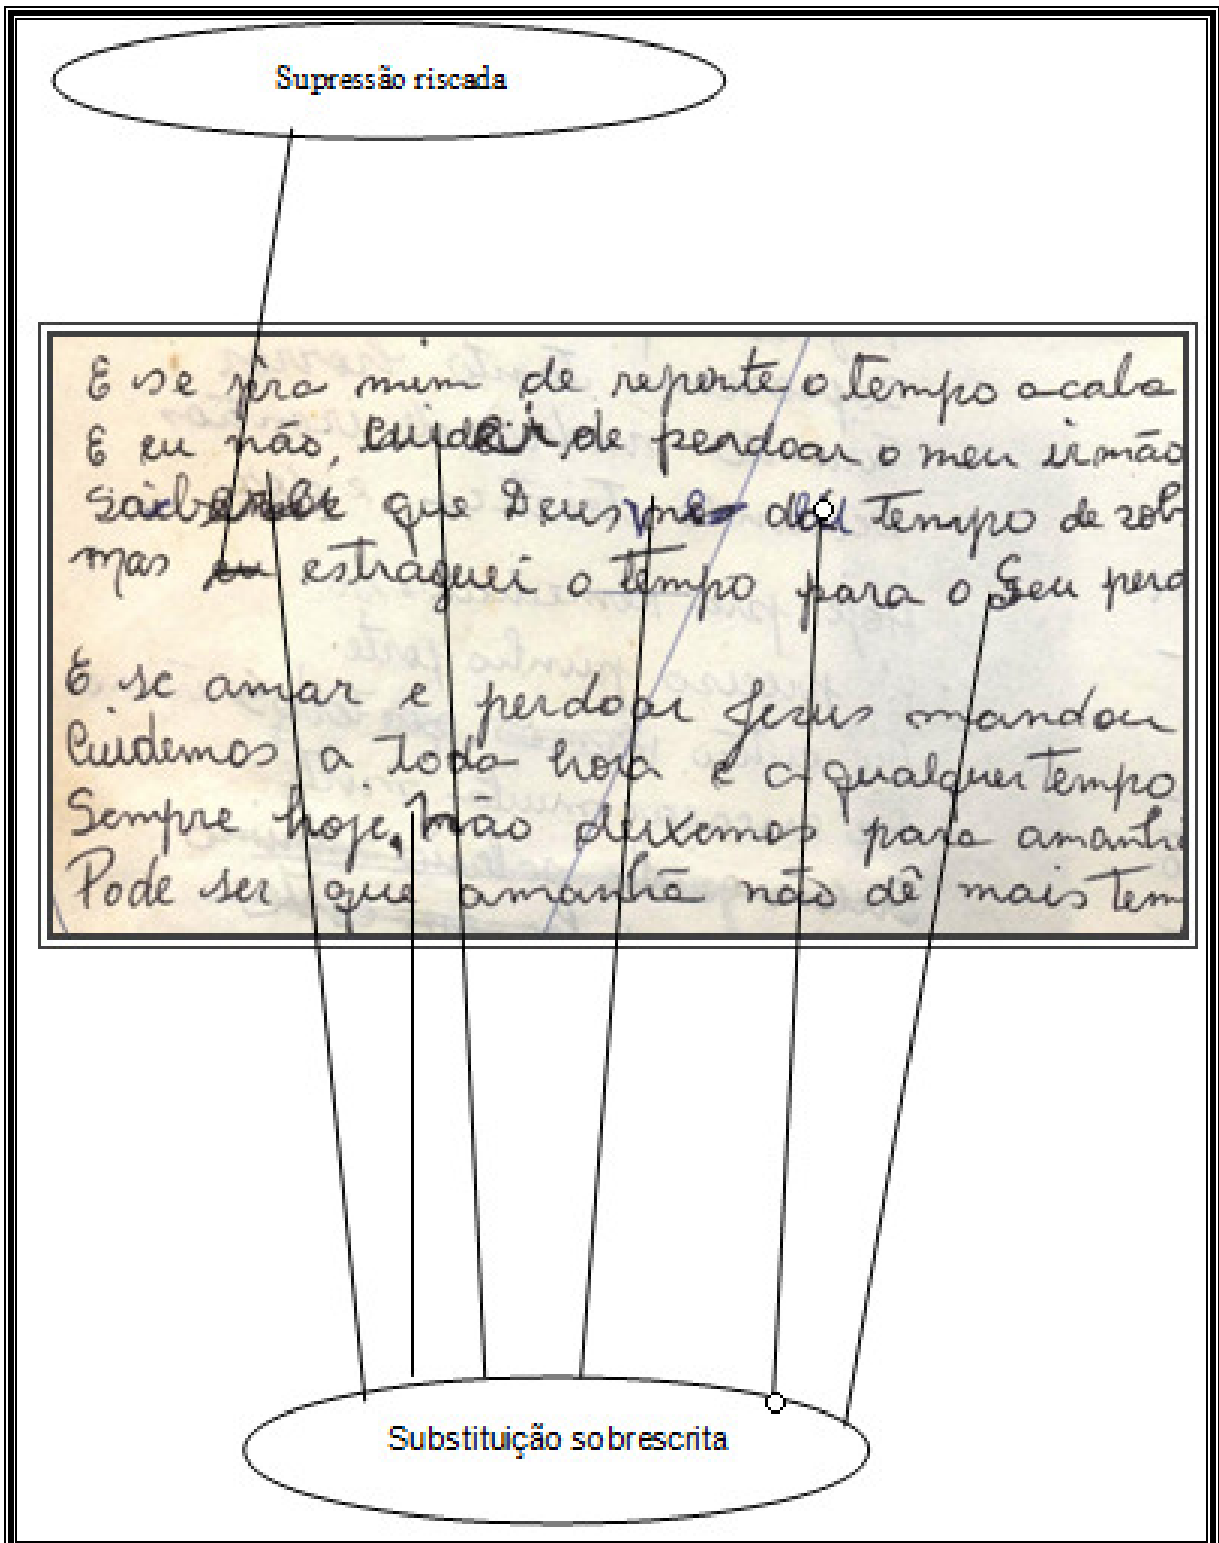 Supressão riscada
E se pra mim de repente o tempo acaba
E eu não, cuidei de perdoar o meu irmão
que Deus me tempo de sob
mas eu estraguei o tempo para o Seu perd
E se amar e perdoar Jesus mandou
Cuidemos a toda hora e a qualquer tempo
Sempre hoje, Não deixemos para amanhã
Pode ser que amanhã não dê mais tem
Substituição sobrescrita